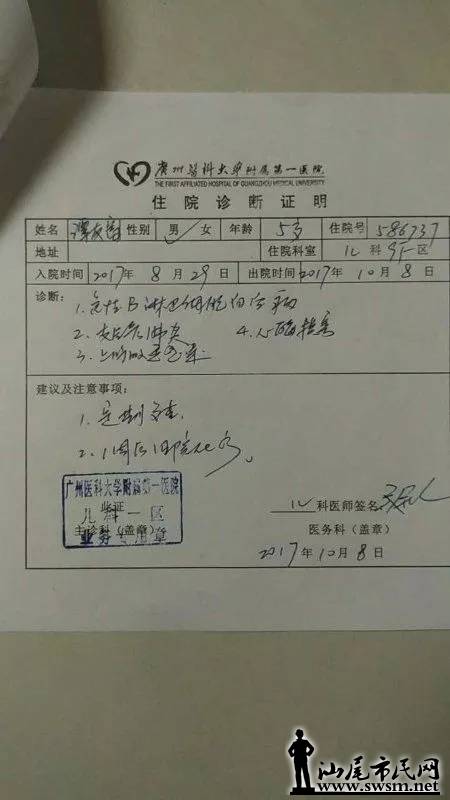 广州医科大学附属第一医院
THE FIRST AFFILIATED HOSPITAL OF GUANGZHOU MEDICAL UNIVERSITY
住院诊断证明
姓名 性别 男 ✓ 女 年龄 5岁 住院号 586737
地址 住院科室 儿科 区
入院时间 2017年8月29日 出院时间 2017年10月8日
诊断:
1. 急性B淋巴细胞白血病
2. 支气管肺炎 4.
3. 上呼吸道感染
建议及注意事项:
1. 定期复查.
2. 1周后回院化疗。
广州医科大学附属第一医院
儿科一区
业务专用章
主诊科(盖章)
儿科医师签名
医务科(盖章)
2017年10月8日
汕尾市民网
www.swsm.net